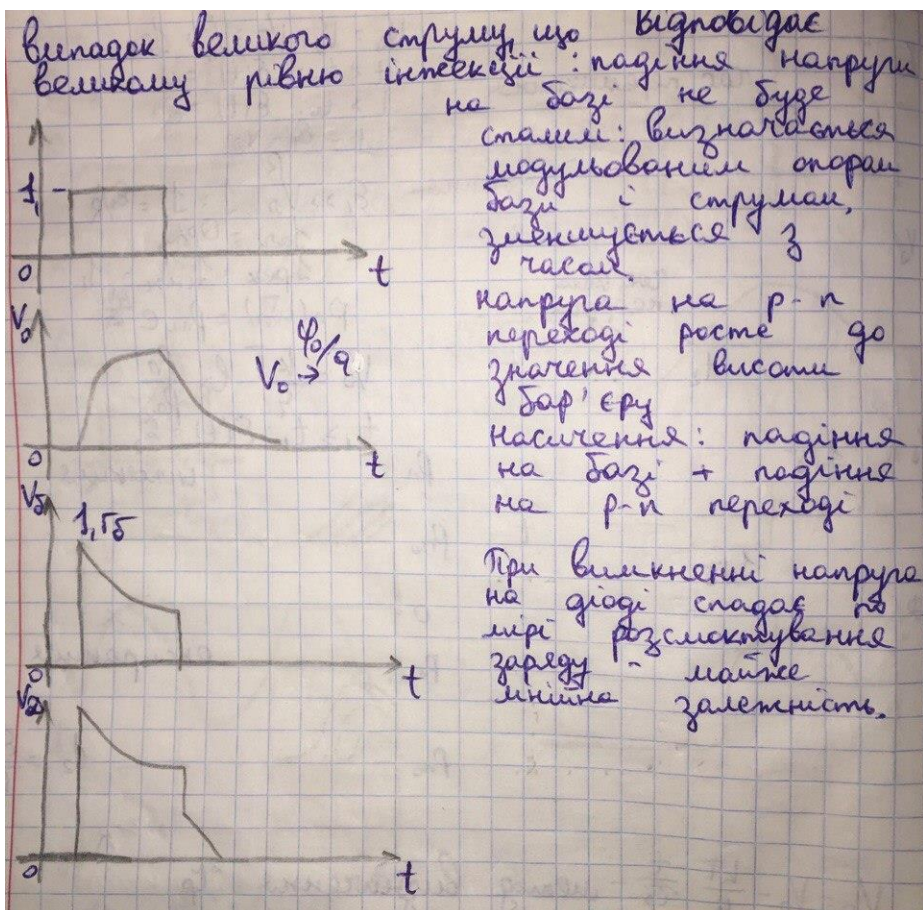 випадок великого струму, що відповідає
великому рівню інжекції: падіння напруги
на базі не буде
сталим: визначається
модульованим опором
бази і струмом,
зменшується з
часом.
напруга на p-n
переході росте до
значення висоти
бар'єру
насичення: падіння
на базі + падіння
на p-n переході
При вимкненні напруга
на діоді спадає по
мірі розсмоктування
заряду - майже
лінійна залежність.
0
t
V₀
V₀ → φ₀/q
0
t
Vб
0
t
0
t